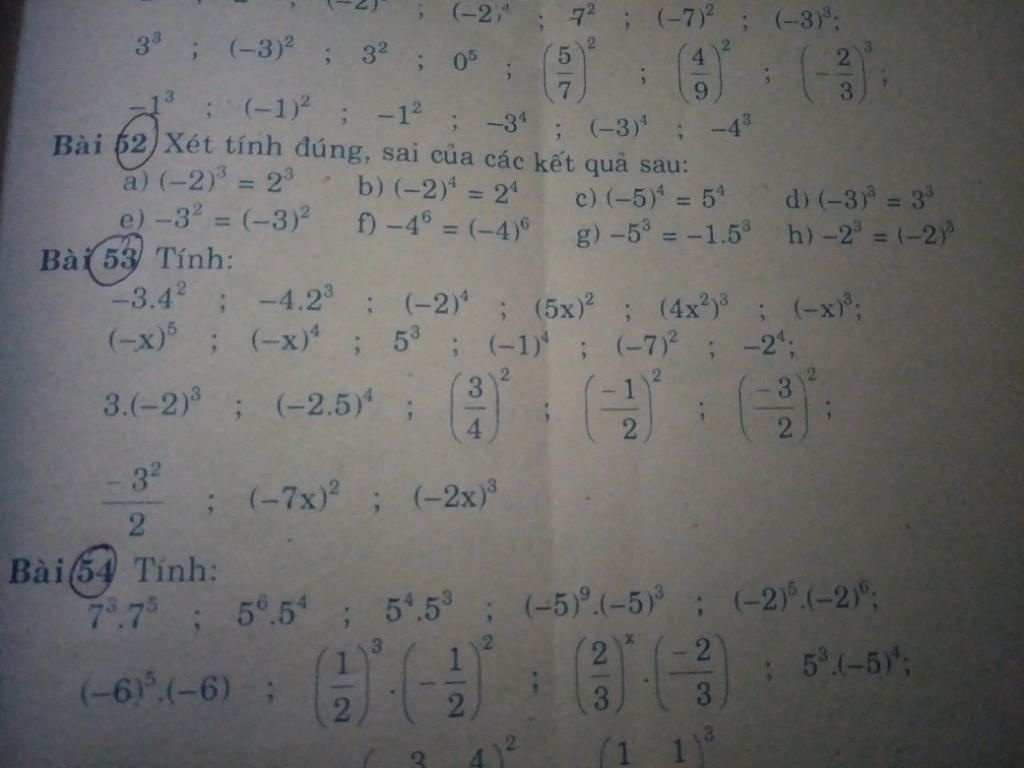 (-2)⁴ ; 7² ; (-7)² ; (-3)³;
3³ ; (-3)² ; 3² ; 0⁵ ; (5/7)² ; (4/9)² ; (-2/3)³ ;
-1³ ; (-1)² ; -1² ; -3⁴ ; (-3)⁴ ; -4³
Bài 52 Xét tính đúng, sai của các kết quả sau:
a) (-2)³ = 2³ b) (-2)⁴ = 2⁴ c) (-5)⁴ = 5⁴ d) (-3)³ = 3³
e) -3² = (-3)² f) -4⁶ = (-4)⁶ g) -5³ = -1.5³ h) -2³ = (-2)³
Bài 53 Tính:
-3.4² ; -4.2³ ; (-2)⁴ ; (5x)² ; (4x²)³ ; (-x)³;
(-x)⁵ ; (-x)⁴ ; 5³ ; (-1)⁴ ; (-7)² ; -2⁴;
3.(-2)³ ; (-2.5)⁴ ; (3/4)² ; (-1/2)² ; (-3/2)² ;
-3²/2 ; (-7x)² ; (-2x)³
Bài 54 Tính:
7³.7⁵ ; 5⁶.5⁴ ; 5⁴.5³ ; (-5)⁹.(-5)³ ; (-2)⁵.(-2)⁶;
(-6)⁵.(-6) ; (1/2)³.(-1/2)² ; (2/3)ˣ.(-2/3) ; 5³.(-5)⁴;